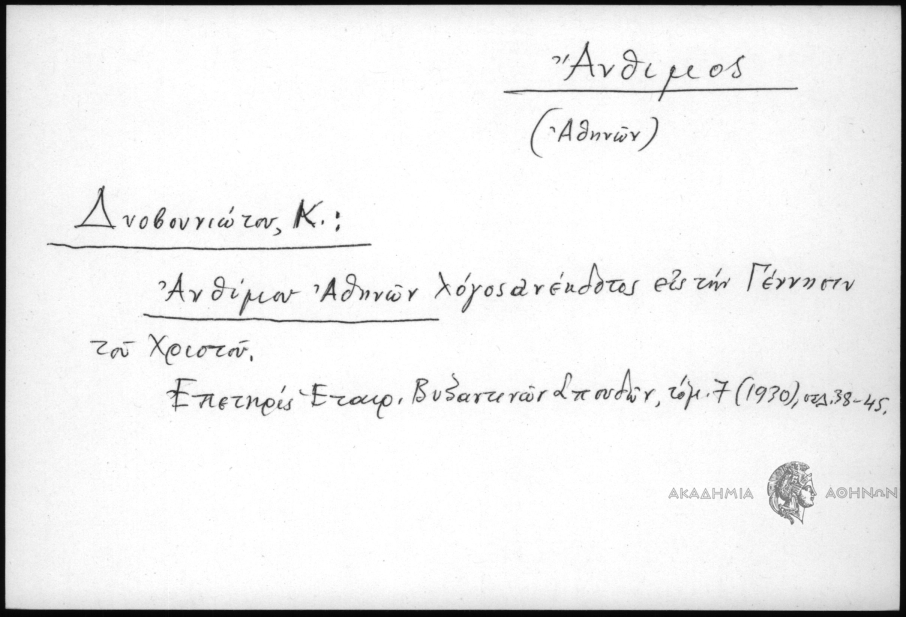 Ἄνθιμος
(Ἀθηνῶν)
Δυοβουνιώτου, Κ.:
Ἀνθίμου Ἀθηνῶν λόγος ἀνέκδοτος εἰς τήν Γέννησιν
τοῦ Χριστοῦ.
Ἐπετηρίς Ἑταιρ. Βυζαντινῶν Σπουδῶν, τόμ. 7 (1930), σελ. 38-45.
ΑΚΑΔΗΜΙΑ ΑΘΗΝΩΝ